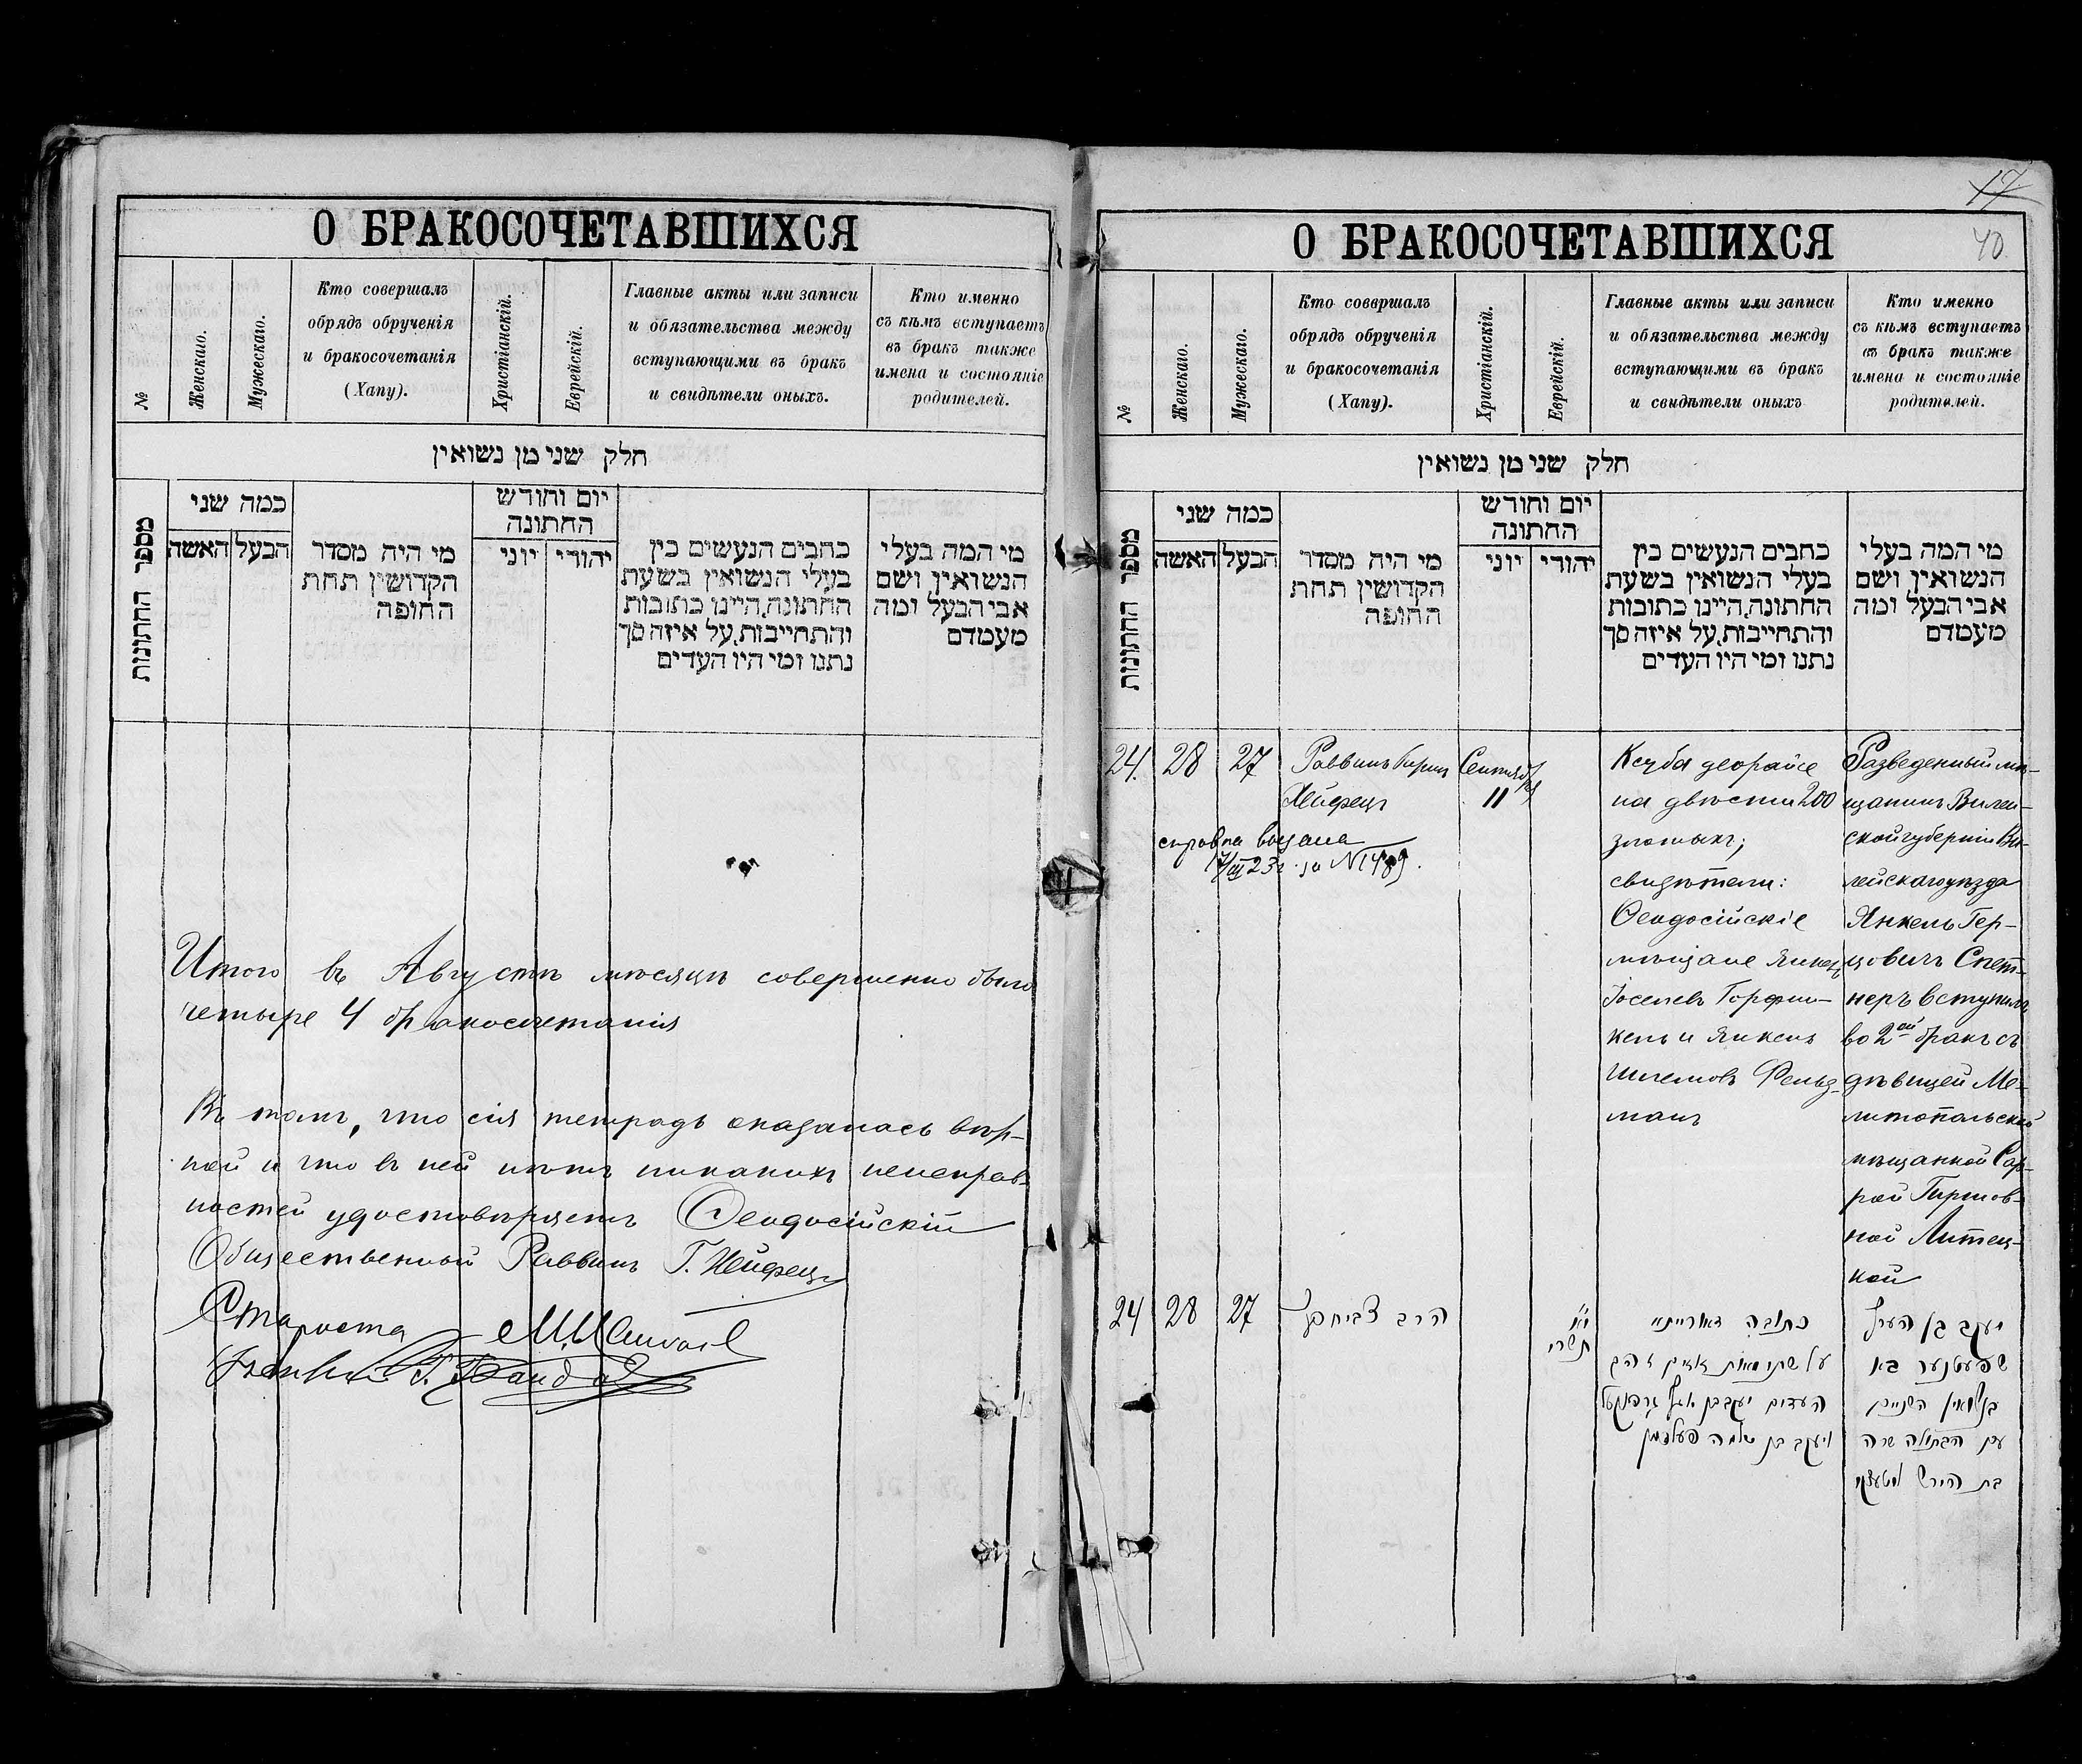 О БРАКОСОЧЕТАВШИХСЯ
№
Женскаго.
Мужескаго.
Кто совершалъ
обрядъ обрученія
и бракосочетанія
(Хапу).
Христіанскій.
Еврейскій.
Главные акты или записи
и обязательства между
вступающими въ бракъ
и свидѣтели оныхъ.
Кто именно
съ кѣмъ вступаетъ
въ бракъ также
имена и состояніе
родителей.
חלק שני מן נשואין
מספר החתונות
כמה שני
האשה
הבעל
מי היה מסדר
הקדושין תחת
החופה
יום וחודש
החתונה
יוני
יהודי
כתבים הנעשים בין
בעלי הנשואין בשעת
החתונה, היינו כתובות
והתחייבות, על איזה סך
נתנו ומי היו העדים
מי המה בעלי
הנשואין ושם
אבי הבעל ומה
מעמדם
Итого въ Августѣ мѣсяцѣ совершено было
четыре 4 бракосочетанія
Въ томъ, что сія тетрадь оказалась вѣр-
ной и что въ ней нѣтъ никакихъ неисправ-
ностей удостовѣряетъ Ѳеодосійскій
Общественный Раввинъ Г. Хейфецъ
Староста
17
40
О БРАКОСОЧЕТАВШИХСЯ
№
Женскаго.
Мужескаго.
Кто совершалъ
обрядъ обрученія
и бракосочетанія
(Хапу).
Христіанскій.
Еврейскій.
Главные акты или записи
и обязательства между
вступающими въ бракъ
и свидѣтели оныхъ
Кто именно
съ кѣмъ вступаетъ
въ бракъ также
имена и состояніе
родителей.
חלק שני מן נשואין
מספר החתונות
כמה שני
האשה
הבעל
מי היה מסדר
הקדושין תחת
החופה
יום וחודש
החתונה
יוני
יהודי
כתבים הנעשים בין
בעלי הנשואין בשעת
החתונה, היינו כתובות
והתחייבות, על איזה סך
נתנו ומי היו העדים
מי המה בעלי
הנשואין ושם
אבי הבעל ומה
מעמדם
24.
28
27
Раввинъ Гиршъ
Хейфецъ
Сентября
11
справка выдана
7/III 23 г. за № 1489.
Ксуба деорайсе
на двѣсти 200
злотыхъ;
свидѣтели:
Ѳеодосійскіе
мѣщане Янкель
Іоселевъ Горфин-
кель и Янкель
Шлемовъ Фельд-
манъ
Разведенный мѣ-
щанинъ Вилен-
ской губерніи Ви-
лейскаго уѣзда
Янкель Гер-
цовичъ Спет-
неръ вступилъ
во 2ой бракъ съ
дѣвицей Ме-
литопольской
мѣщанкой Сар-
рой Гиршов-
ной Литец-
кой
24
28
27
הרב
תשרי
כתובה דאורייתא
על שתי מאות
העדים יעקב בן
ויעקב בן שלמה פעלדמן
יעקב בן הערץ
שפעטנער בא
בנשואין השניים
עם הבתולה שרה
בת הירש